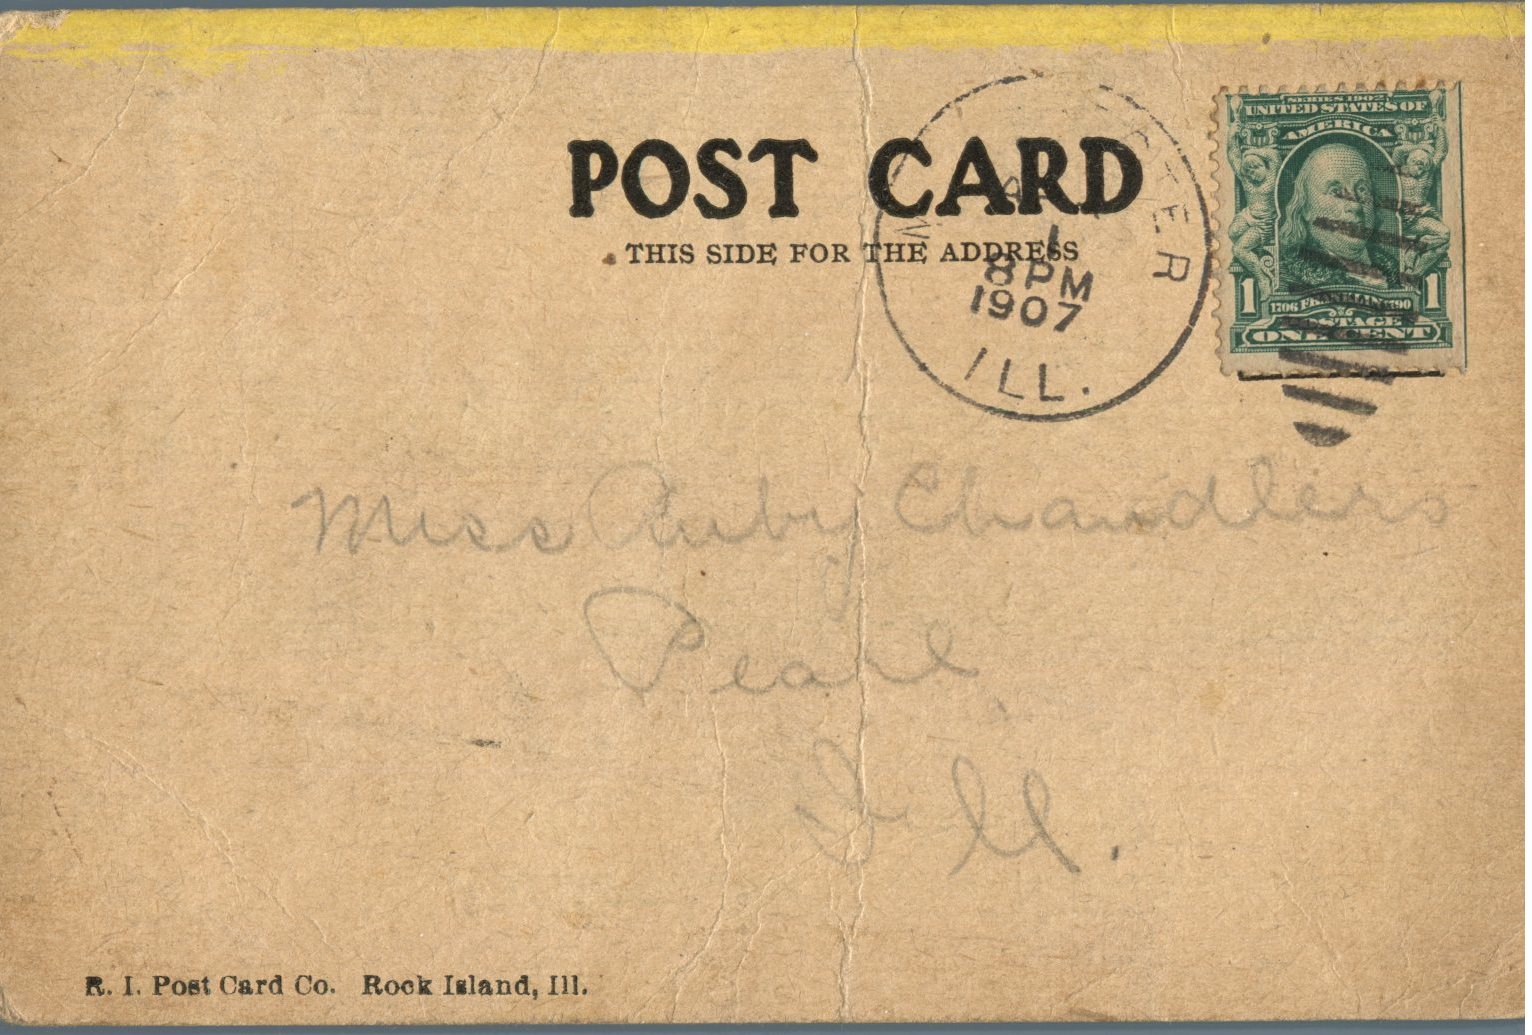 POST CARD
THIS SIDE FOR THE ADDRESS
1
8 PM
1907
ILL.
SERIES 1902
UNITED STATES OF
AMERICA
1 1
FRANKLIN
POSTAGE
ONE CENT
Miss Ruby Chandlers
Pearl
Ill.
R. I. Post Card Co. Rock Island, Ill.